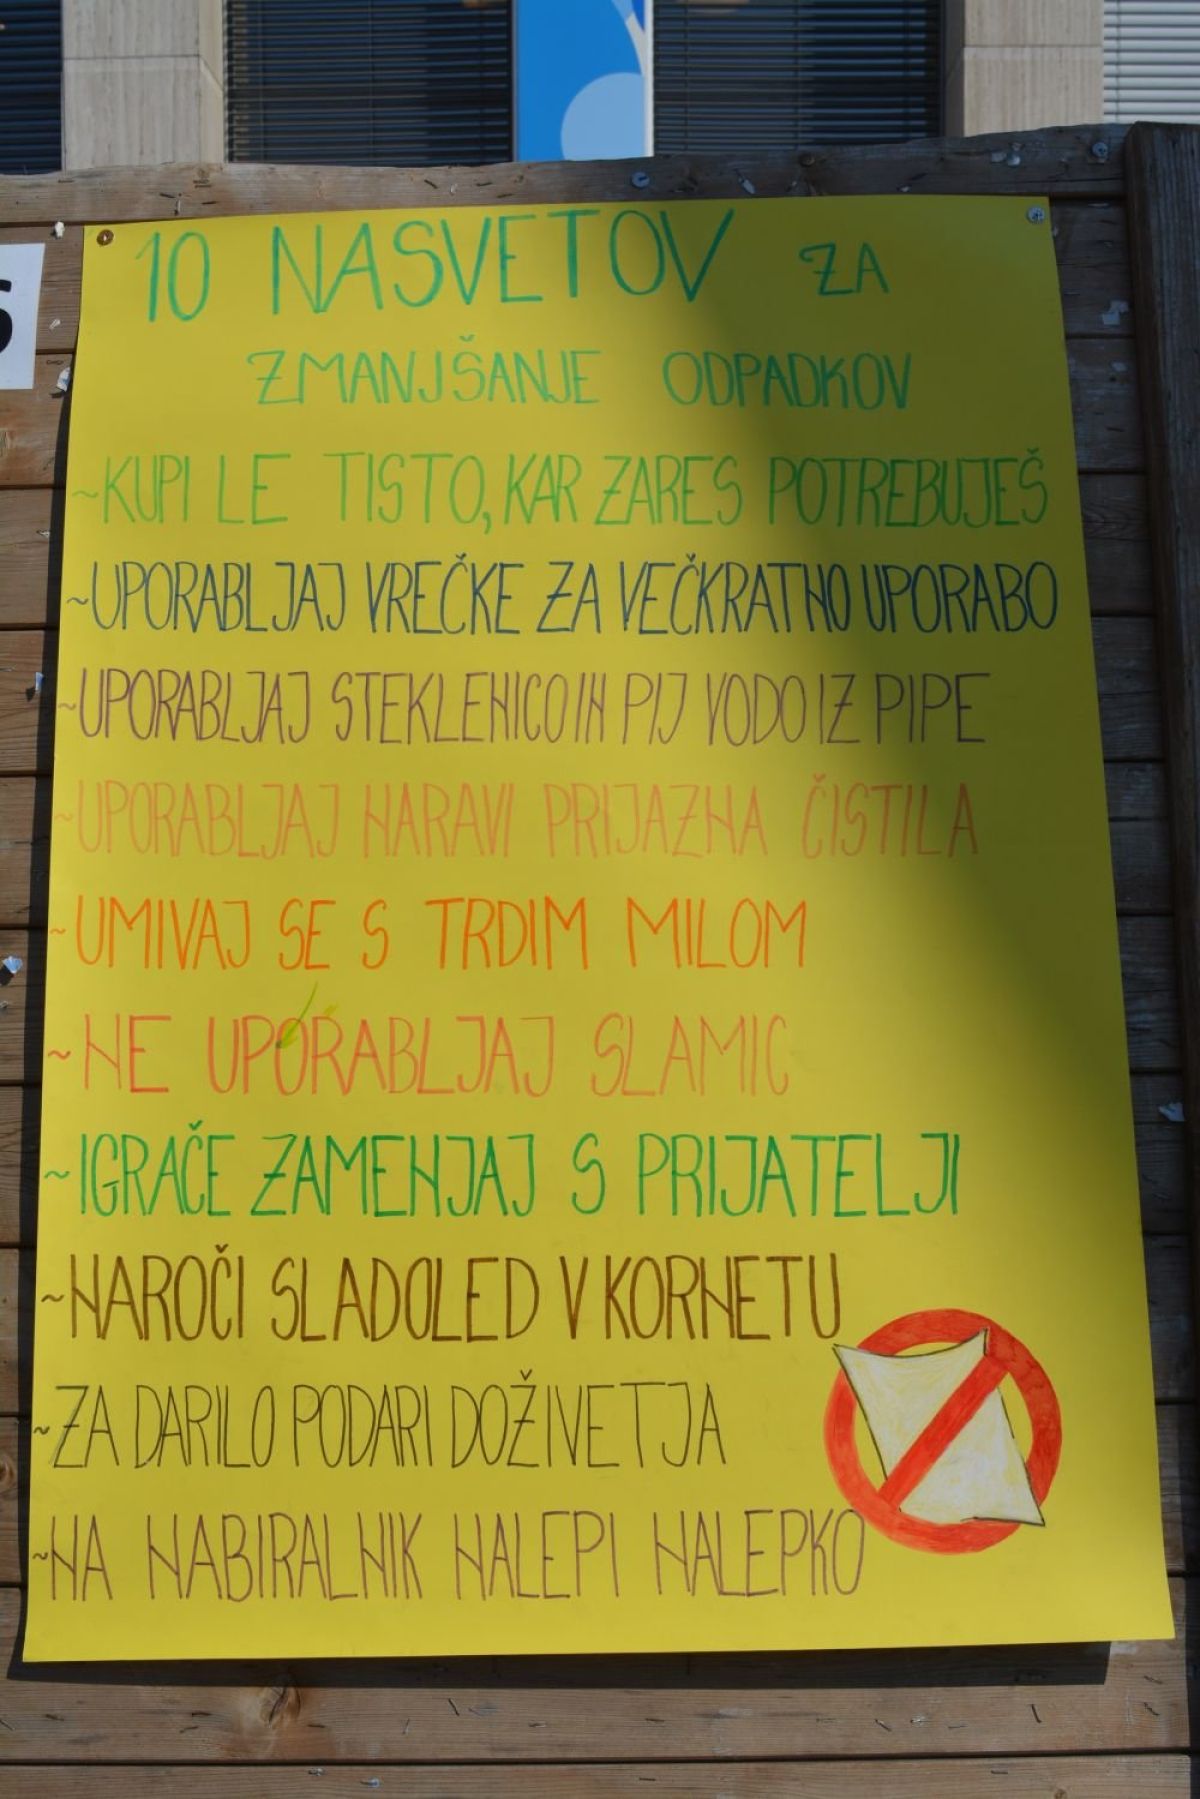 10 NASVETOV ZA
ZMANJŠANJE ODPADKOV
~KUPI LE TISTO, KAR ZARES POTREBUJEŠ
~UPORABLJAJ VREČKE ZA VEČKRATNO UPORABO
~UPORABLJAJ STEKLENICO IN PIJ VODO IZ PIPE
~UPORABLJAJ NARAVI PRIJAZNA ČISTILA
~UMIVAJ SE S TRDIM MILOM
~NE UPORABLJAJ SLAMIC
~IGRAČE ZAMENJAJ S PRIJATELJI
~NAROČI SLADOLED V KORNETU
~ZA DARILO PODARI DOŽIVETJA
~NA NABIRALNIK NALEPI NALEPKO